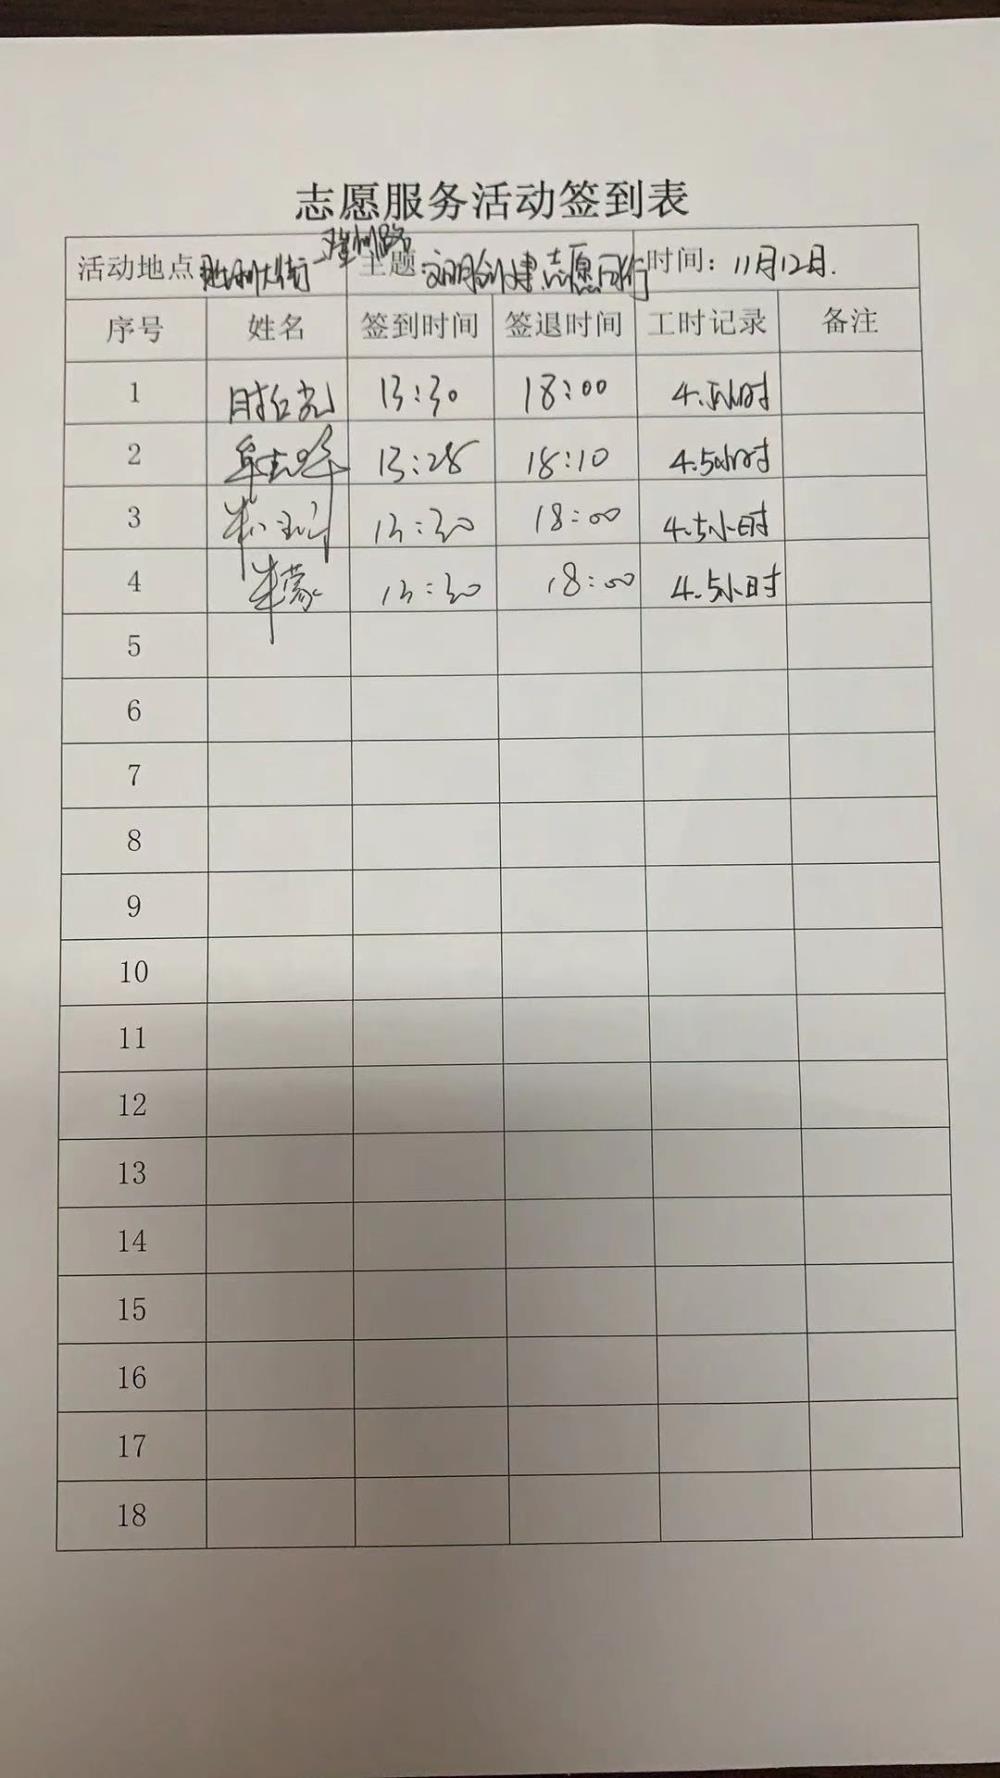 志愿服务活动签到表
活动地点 胜利大街 主题:文明创建 志愿同行 时间:11月12日.
序号 姓名 签到时间 签退时间 工时记录 备注
1 13:30 18:00 4.5小时
2 13:28 18:10 4.5小时
3 13:30 18:00 4.5小时
4 牟蒙 13:30 18:00 4.5小时
5
6
7
8
9
10
11
12
13
14
15
16
17
18